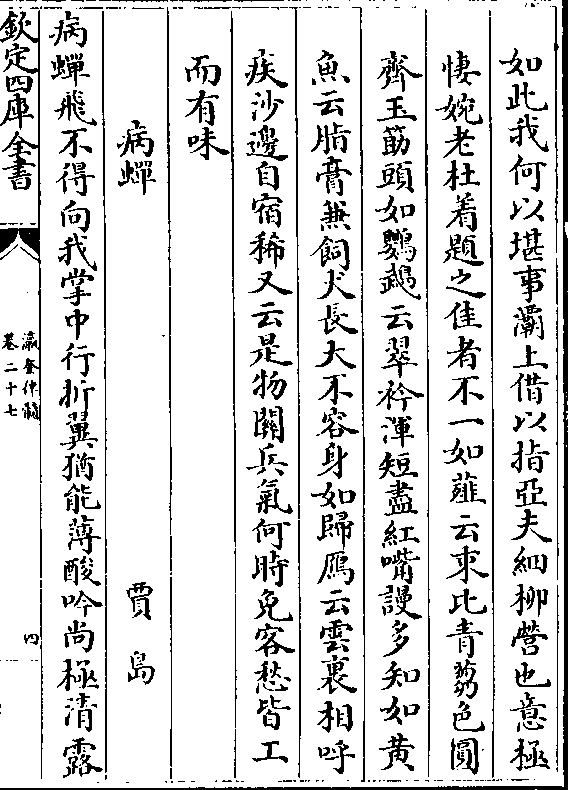 如此我何以堪事灞上借以指亞夫細柳營也意極
悽婉老杜着題之佳者不一如薤云束比青芻色圓
齊玉筯頭如鸚鵡云翠衿渾短盡紅嘴謾多知如黄
魚云脂膏兼飼犬長大不容身如歸鴈云雲裏相呼
疾沙邊自宿稀又云是物關兵氣何時免客愁皆工
而有味
病蟬 賈島
病蟬飛不得向我掌中行折翼猶能薄酸吟尚極清露
欽定四庫全書
瀛奎律髓
卷二十七
四